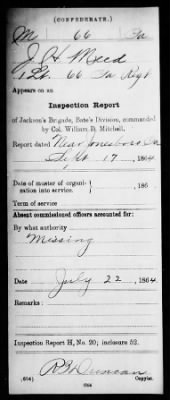 (CONFEDERATE.)
M 66 Ga
J. H. Meed
1 Lt. 66 Ga Regt
Appears on an
Inspection Report
of Jackson's Brigade, Bate's Division, commanded
by Col. William D. Mitchell.
Report dated Near Jonesboro Ga
Sept 17, 1864
Date of muster of organi-
zation into service } , 186 .
Term of service
Absent commissioned officers accounted for:
By what authority
Missing
Date July 22, 1864
Remarks:
Inspection Report H, No. 20; inclosure 52.
R B Duncan
(654) Copyist.